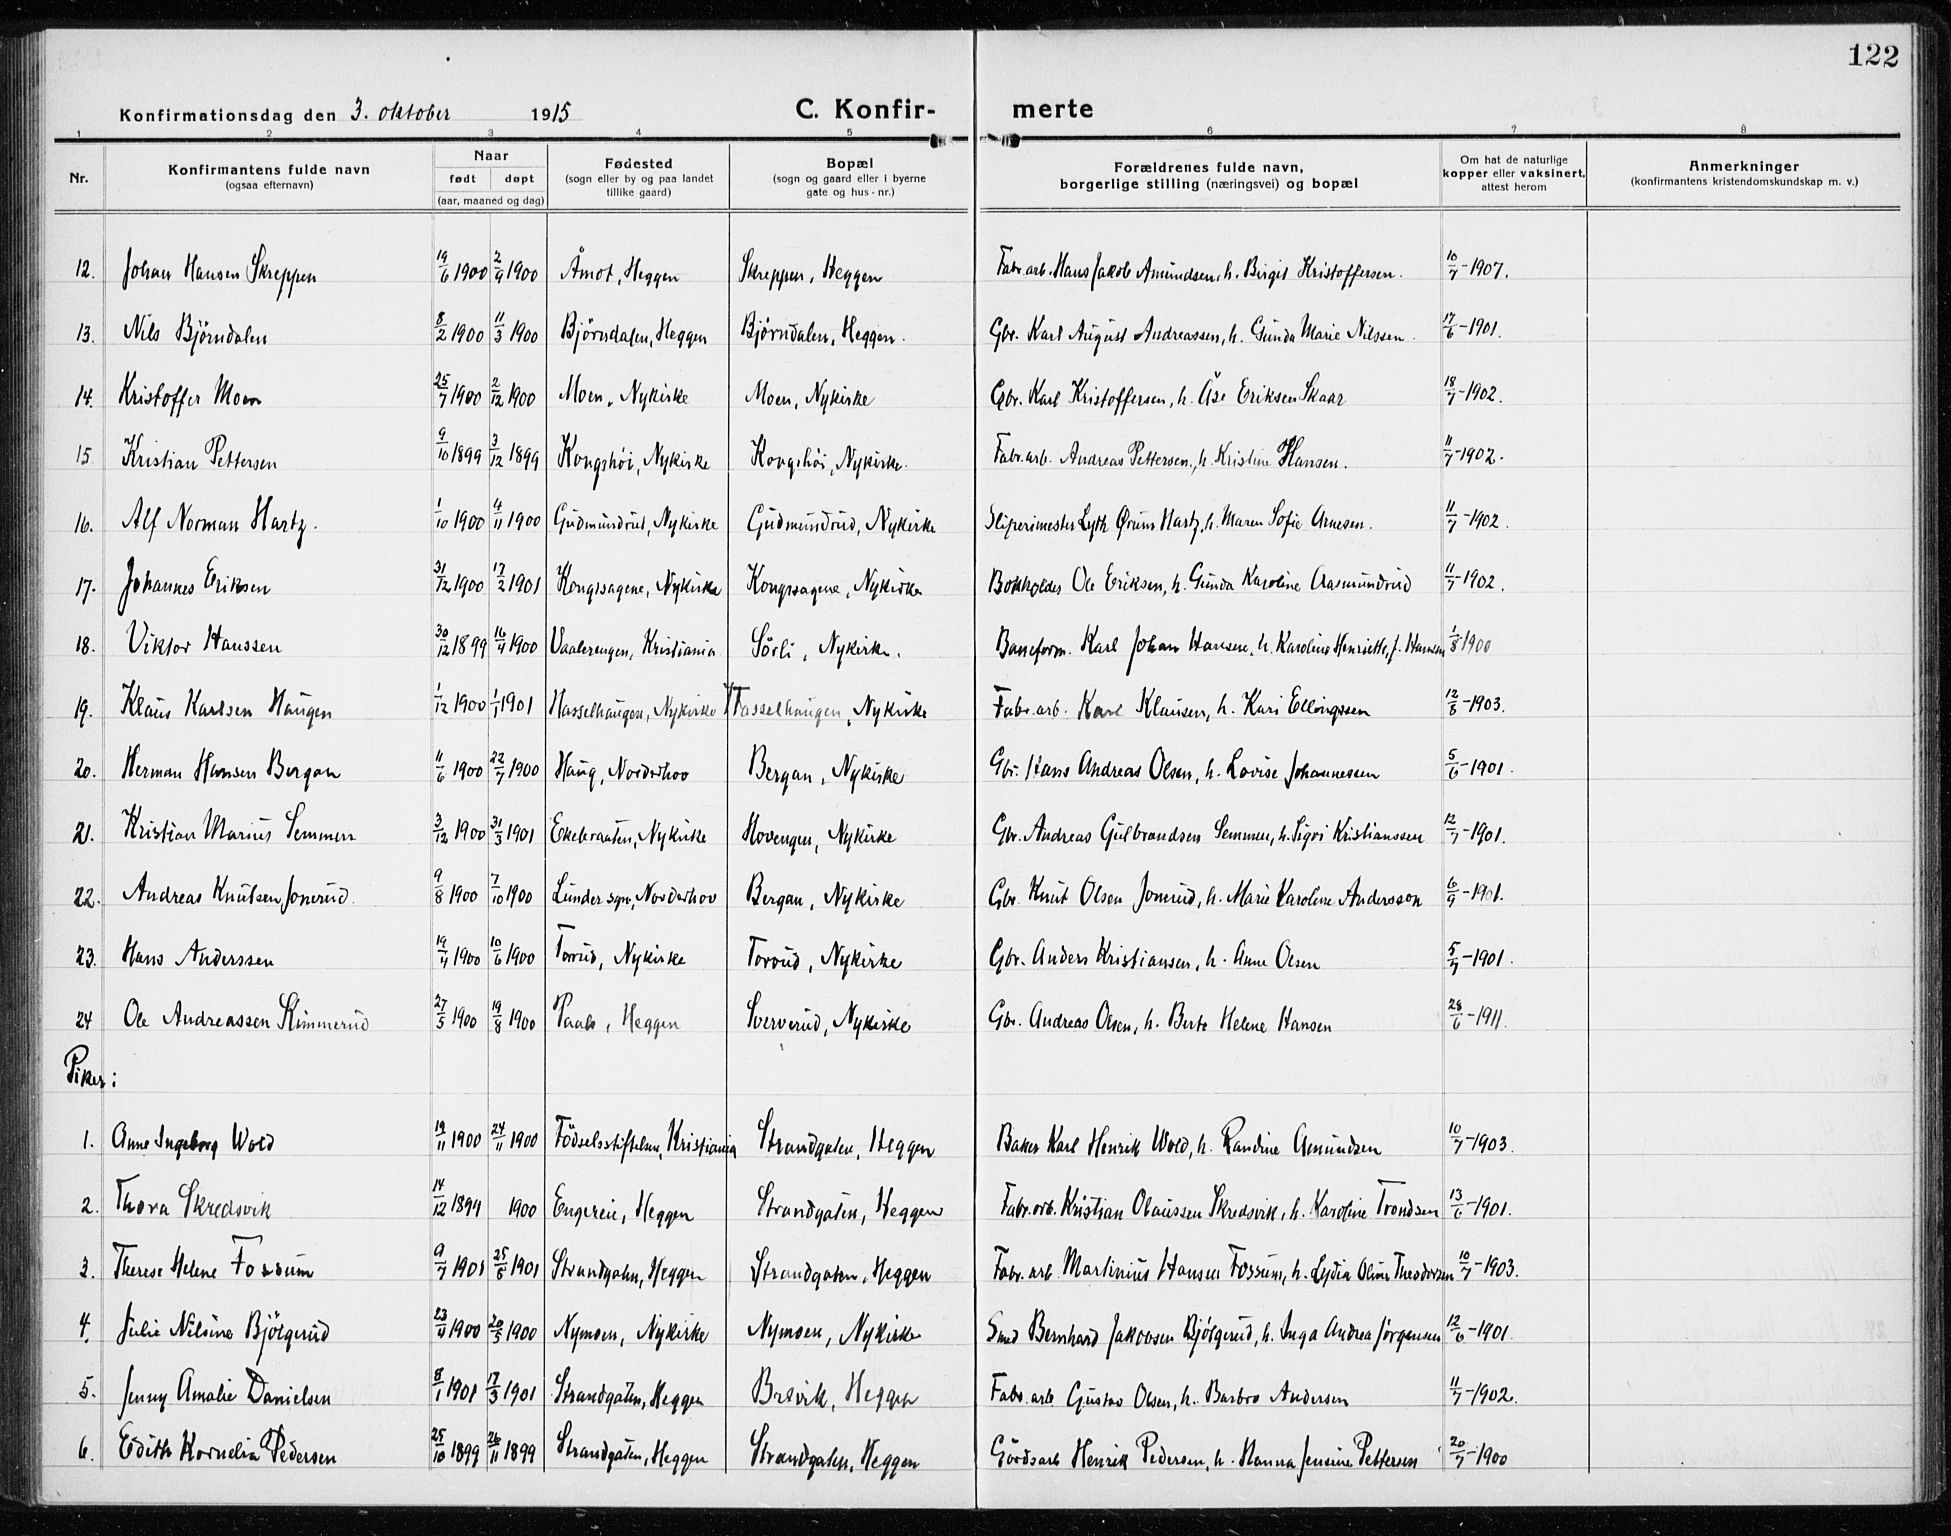 122
Konfirmationsdag den 3. oktober 1915 C. Konfir- merte
1 2 3 4 5 6 7 8
Nr. Konfirmantens fulde navn (ogsaa efternavn) Naar født døpt (aar, maaned og dag) Fødested (sogn eller by og paa landet tillike gaard) Bopæl (sogn og gaard eller i byerne gate og hus-nr.) Forældrenes fulde navn, borgerlige stilling (næringsvei) og bopæl Om hat de naturlige kopper eller vaksinert, attest herom Anmerkninger (konfirmantens kristendomskundskap m. v.)
12. Johan Hansen Skreppen 19/6 1900 2/9 1900 Åmot, Heggen Skreppen, Heggen Fabr.arb. Hans Jakob Amundsen, h. Birgit Kristoffersen. 10/7-1907.
13. Nils Björndalen 8/2 1900 11/3 1900 Björndalen, Heggen Björndalen, Heggen. Gbr. Karl August Andreassen, h. Gunda Marie Nilssen. 17/6-1901.
14. Kristoffer Moen 25/7 1900 2/12 1900 Moen, Nykirke Moen, Nykirke Gbr. Karl Kristoffersen, h. Åse Eriksen Skaar 18/7-1902.
15 Kristian Pettersen 9/10 1899 3/12 1899 Kongshöi, Nykirke Kongshöi, Nykirke. Fabr.arb. Andreas Pettersen, h. Kristine Hansen. 11/7-1902.
16. Alf Norman Hartz. 1/10 1900 4/11 1900 Gudmundrud, Nykirke Gudmundrud, Nykirke Sliperimester Lyth Ørum Hartz, h. Maren Sofie Arnesen. 11/7-1902.
17. Johannes Eriksen 31/12 1900 17/2 1901 Kongssagene, Nykirke Kongssagene, Nykirke Bokholder Ole Eriksen, h. Gunda Karoline Aasmundrud 11/7-1902.
18. Viktor Hanssen 30/12 1899 16/4 1900 Vaalerengen, Kristiania Sörli, Nykirke. Baneform. Karl Johan Hansen, h. Karoline Henriette, f. Hansen 1/8 1900
19. Klaus Karlsen Haugen 1/12 1900 1/1 1901 Hasselhaugen, Nykirke Hasselhaugen, Nykirke Fabr.arb. Karl Klausen, h. Kari Ellingssen 12/8-1903.
20. Herman Hansen Bergan 11/6 1900 22/7 1900 Haug, Norderhov Bergan, Nykirke Gbr. Hans Andreas Olsen, h. Lovise Johannessen 5/6-1901.
21. Kristian Marius Semmen 3/12 1900 31/3 1901 Ekebraaten, Nykirke Hovengen, Nykirke Gbr. Andreas Gulbrandsen Semmen, h. Sigri Kristianssen 12/7-1901.
22. Andreas Knutsen Jonerud. 9/8 1900 7/10 1900 Lunder sgn, Norderhov Bergan, Nykirke Gbr. Knut Olsen Jonrud, h. Marie Karoline Andersson 6/9-1901.
23. Hans Anderssen 19/4 1900 10/6 1900 Torrud, Nykirke Torrud, Nykirke Gbr. Anders Kristiansen, h. Anne Olsen 5/7-1901.
24 Ole Andreassen Skimmerud 27/5 1900 19/8 1900 Paals, Heggen Sververud, Nykirke Gbr. Andreas Olsen, h. Berte Helene Hansen 28/6-1911.
Piker:
1. Anne Ingeborg Wold 19/11 1900 24/11 1900 Födselsstiftelsen, Kristiania Strandgaten, Heggen Baker Karl Henrik Wold, h. Randine Amundsen 10/7-1903.
2. Thora Skredsvik 14/12 1899 1900 Engereie, Heggen Strandgaten, Heggen Fabr.arb. Kristian Olaussen Skredsvik, h. Karoline Trondsen 13/6-1901.
3. Therese Helene Fossum 9/7 1901 25/8 1901 Strandgaten, Heggen Strandgaten, Heggen Fabr.arb. Martinius Hansen Fossum, h. Lydia Oline Theodorsen 10/7-1903.
4. Julie Nilsine Bjölgerud 23/4 1900 20/5 1900 Nymoen, Nykirke Nymoen, Nykirke Smed Bernhard Jakobsen Bjölgerud, h. Inga Andrea Jörgensen 12/6-1901.
5. Jenny Amalie Danielsen 8/1 1901 17/3 1901 Strandgaten, Heggen Brevik, Heggen Fabr.arb. Gustav Olsen, h. Barbro Andersen 11/7-1902.
6. Edith Kornelia Pedersen 25/10 1899 26/11 1899 Strandgaten, Heggen Strandgaten, Heggen Gårdsarb Henrik Pedersen, h. Hanna Jensine Pettersen 20/7-1900